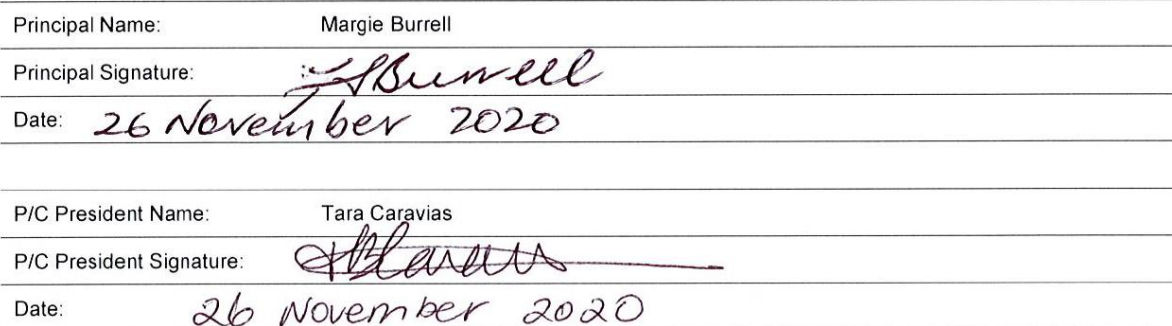 Principal Name: Margie Burrell
Principal Signature: Burrell
Date: 26 November 2020
P/C President Name: Tara Caravias
P/C President Signature:
Date: 26 November 2020